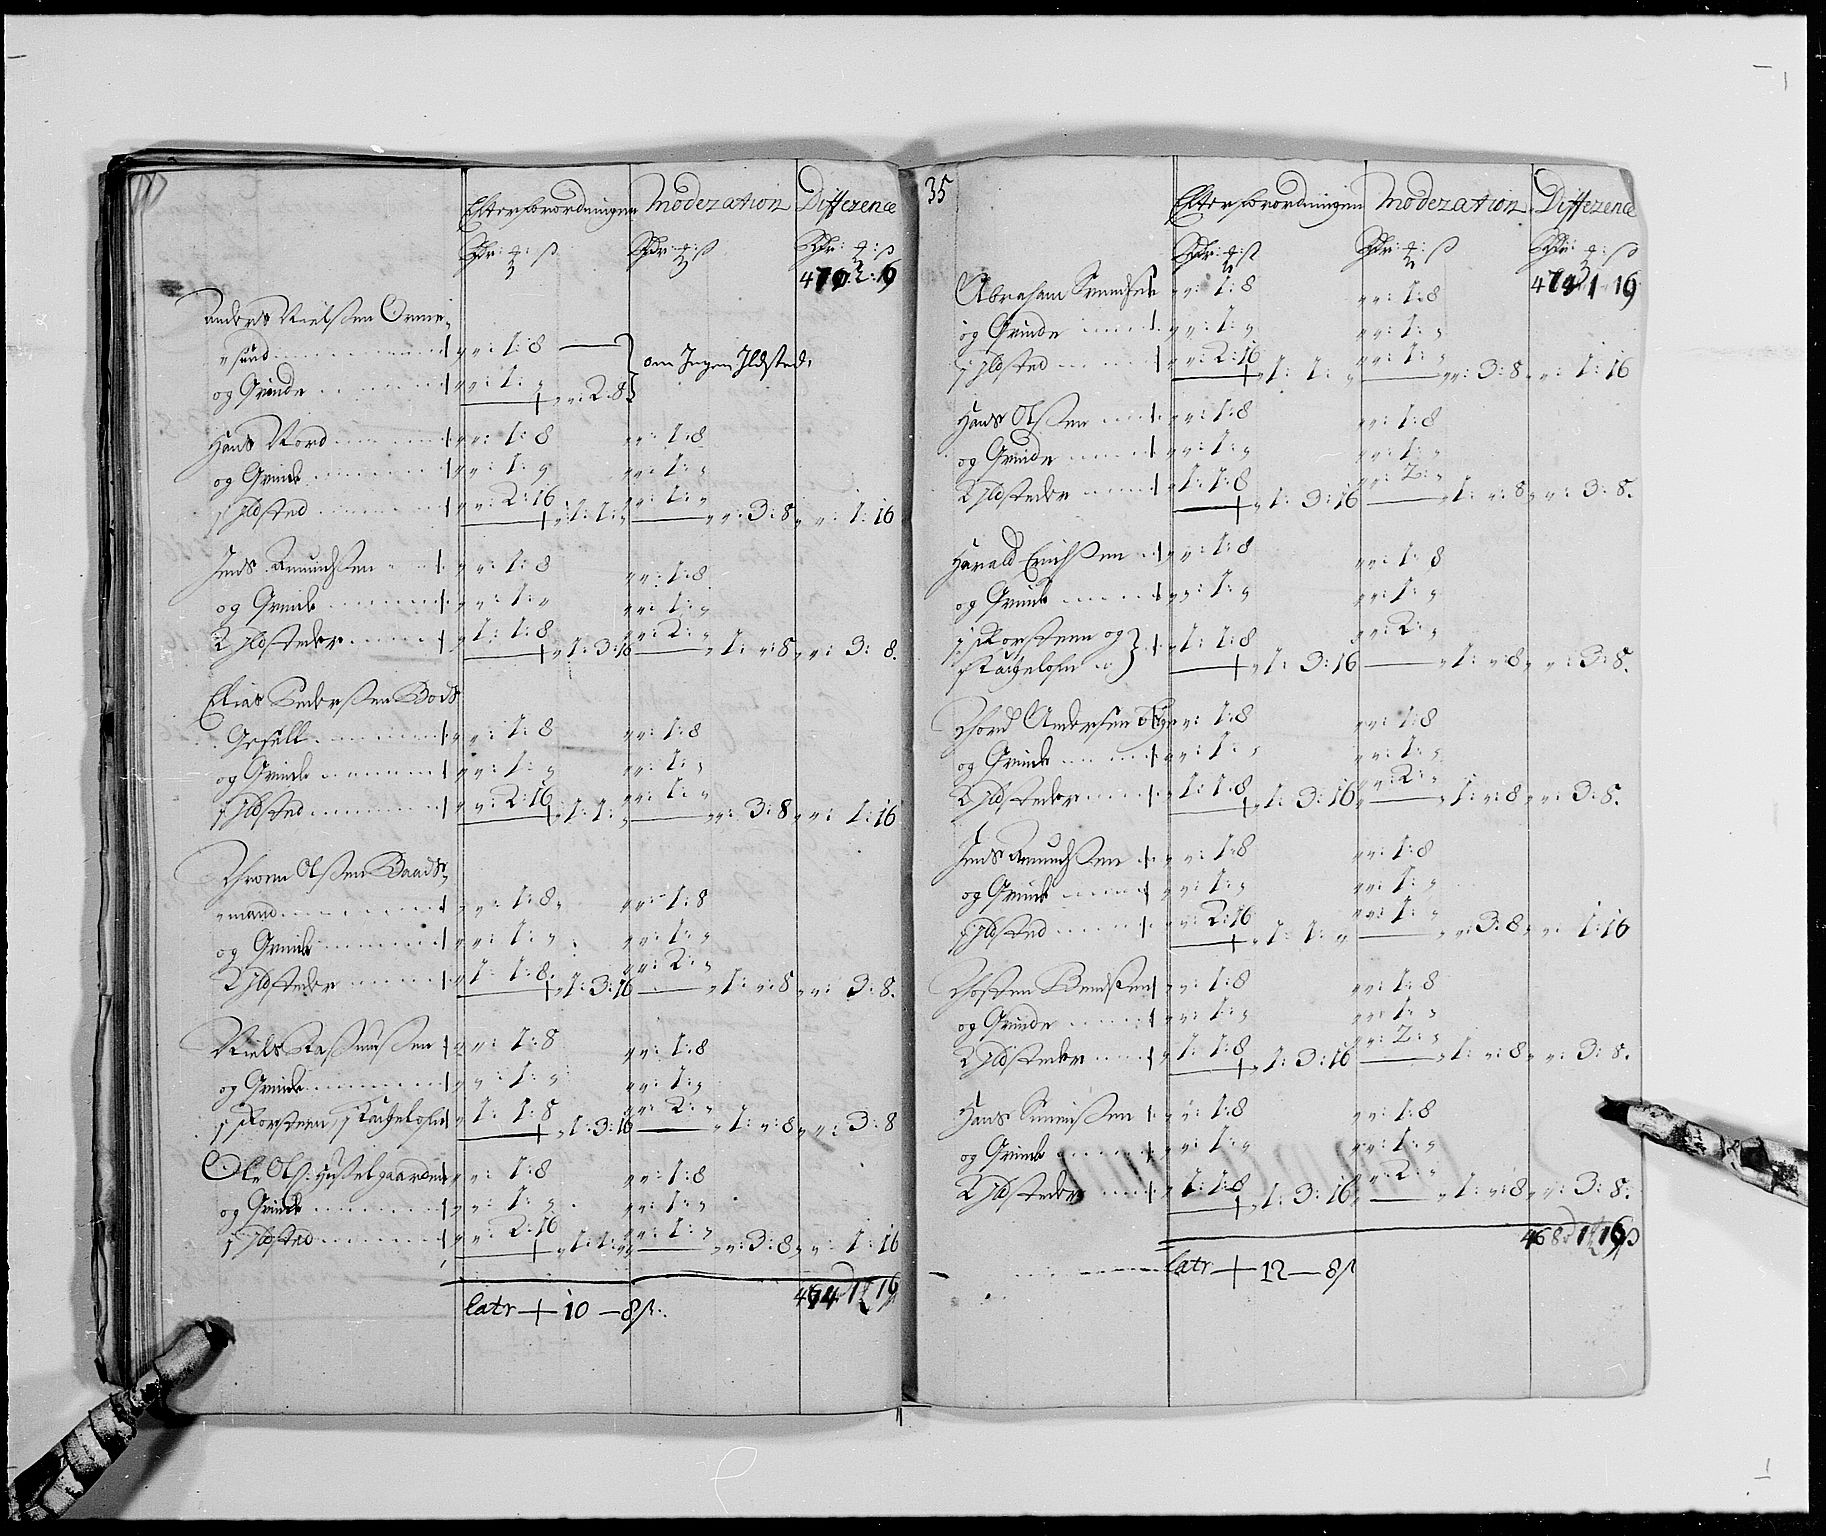 177
Efterforordningen Moderation Difference
Rdr: ꝗ: ß Rdr: ꝗ: ß Rdr: ꝗ: ß
2: 6
Anders Nielssen Orme„
„sund „ „: 1: 8
om Ingen Ildsted.
og Qvinde „ „: 1: „ „ „: 2: 8
Hans Nord „ „: 1: 8 „ „: 1: 8
og Qvinde „ „: 1: „ „ „: 1: „
1 Ildsted „ „: 2: 16 „ 1: 1: „ „ „: 1: „ „ „: 3: 8 „ „: 1: 16
Jens Amundssen „ „: 1: 8 „ „: 1: 8
og Qvinde „ „: 1: „ „ „: 1: „
2 Ildsteder „ 1: 1: 8 „ 1: 3: 16 „ „: 2: „ „ 1: „: 8 „ „: 3: 8.
Elias Pederssen Bods
Gesell „ „: 1: 8 „ „: 1: 8
og Qvinde „ „: 1: „ „ „: 1: „
1 Ildsted „ „: 2: 16 „ 1: 1: „ „ „: 1: „ „ „: 3: 8 „ „: 1: 16
Thronn Olssen Baads„
„mand „ „: 1: 8 „ „: 1: 8
og Qvinde „ „: 1: „ „ „: 1: „
2 Ildsteder „ 1: 1: 8 „ 1: 3: 16 „ „: 2: „ „ 1: „: 8 „ „: 3: 8.
Niels Rassmussen „ „: 1: 8 „ „: 1: 8
og Qvinde „ „: 1: „ „ „: 1: „
1 Korsteen, 1 Kachelofn „ 1: 1: 8 „ 1: 3: 16 „ „: 2: „ „ 1: „: 8 „ „: 3: 8
Ole Ols: „ „: 1: 8 „ „: 1: 8
og Qvinde „ „: 1: „ „ „: 1: „
1 Ildsted „ „: 2: 16 „ 1: 1: „ „ „: 1: „ „ „: 3: 8 „ „: 1: 16
latr + 10 — 8ß. 1 16
35
Efterforordningen Moderation Difference
Rdr: ꝗ: ß Rdr: ꝗ: ß Rdr: ꝗ: ß
1 16
Abraham Svendsen „ „: 1: 8 „ „: 1: 8
og Qvinde „ „: 1: „ „ „: 1: „
1 Ildsted „ „: 2: 16 „ 1: 1: „ „ „: 1: „ „ „: 3: 8 „ „: 1: 16
Hans Olssen „ „: 1: 8 „ „: 1: 8
og Qvinde „ „: 1: „ „ „: 1: „
2 Ildsteder „ 1: 1: 8 „ 1: 3: 16 „ „: 2: „ „ 1: „: 8 „ „: 3: 8.
Harald Erichssen „ „: 1: 8 „ „: 1: 8
og Qvinde „ „: 1: „ „ „: 1: „
1 Korsteen og „ 1: 1: 8 „ „: 2: „
1 Kachelofn „ 1: 3: 16 „ 1: „: 8 „ „: 3: 8.
Thord Andersen „ „: 1: 8 „ „: 1: 8
og Qvinde „ „: 1: „ „ „: 1: „
2 Ildsteder „ 1: 1: 8 „ 1: 3: 16 „ „: 2: „ „ 1: „: 8 „ „: 3: 8.
Jens Amundssen „ „: 1: 8 „ „: 1: 8
og Qvinde „ „: 1: „ „ „: 1: „
1 Ildsted „ „: 2: 16 „ 1: 1: „ „ „: 1: „ „ „: 3: 8 „ „: 1: 16
Thosten Bendssen „ „: 1: 8 „ „: 1: 8
og Qvinde „ „: 1: „ „ „: 1: „
2 Ildsteder „ 1: 1: 8 „ 1: 3: 16 „ „: 2: „ „ 1: „: 8 „ „: 3: 8.
Hans Simenssen „ „: 1: 8 „ „: 1: 8
og Qvinde „ „: 1: „ „ „: 1: „
2 Ildsteder „ 1: 1: 8 „ 1: 3: 16 „ „: 2: „ „ 1: „: 8 „ „: 3: 8.
468 1 16ß
latr + 12 — 8ß